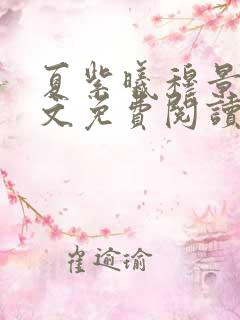 夏紫曦穆景
文免費閱讀
崔逾瑜